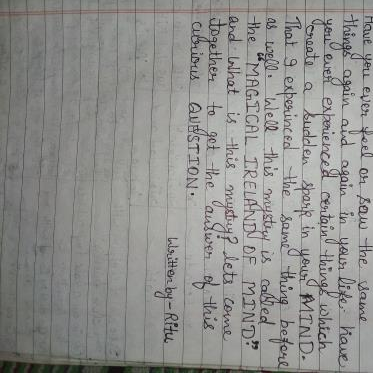 Have you ever feel or saw the same
things again and again in your life. Have
you ever experienced certain things which
create a sudden spark in your MIND.
That I experinced the same thing before
as well. Well this mystery is called
the "MAGICAL IRELAND OF MIND"
and what is this mystry? lets come
together to get the answer of this
curious QUESTION.
Written by - Ritu